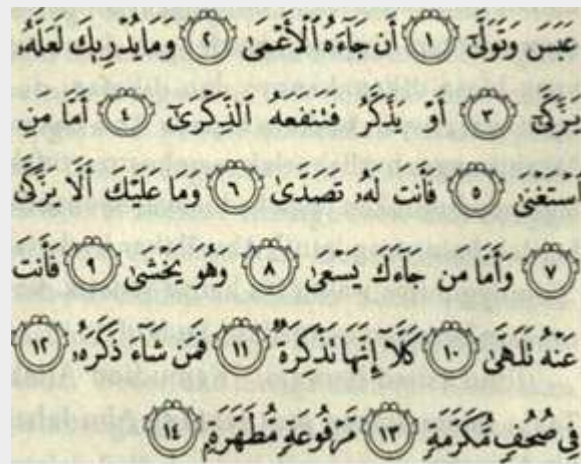 عَبَسَ وَتَوَلَّىٰٓ ١ أَن جَآءَهُ ٱلْأَعْمَىٰ ٢ وَمَا يُدْرِيكَ لَعَلَّهُۥ
يَزَّكَّىٰٓ ٣ أَوْ يَذَّكَّرُ فَتَنفَعَهُ ٱلذِّكْرَىٰٓ ٤ أَمَّا مَنِ
ٱسْتَغْنَىٰ ٥ فَأَنتَ لَهُۥ تَصَدَّىٰ ٦ وَمَا عَلَيْكَ أَلَّا يَزَّكَّىٰ
٧ وَأَمَّا مَن جَآءَكَ يَسْعَىٰ ٨ وَهُوَ يَخْشَىٰ ٩ فَأَنتَ
عَنْهُ تَلَهَّىٰ ١٠ كَلَّآ إِنَّهَا تَذْكِرَةٌ ١١ فَمَن شَآءَ ذَكَرَهُۥ ١٢
فِى صُحُفٍ مُّكَرَّمَةٍ ١٣ مَّرْفُوعَةٍ مُّطَهَّرَةٍۭ ١٤